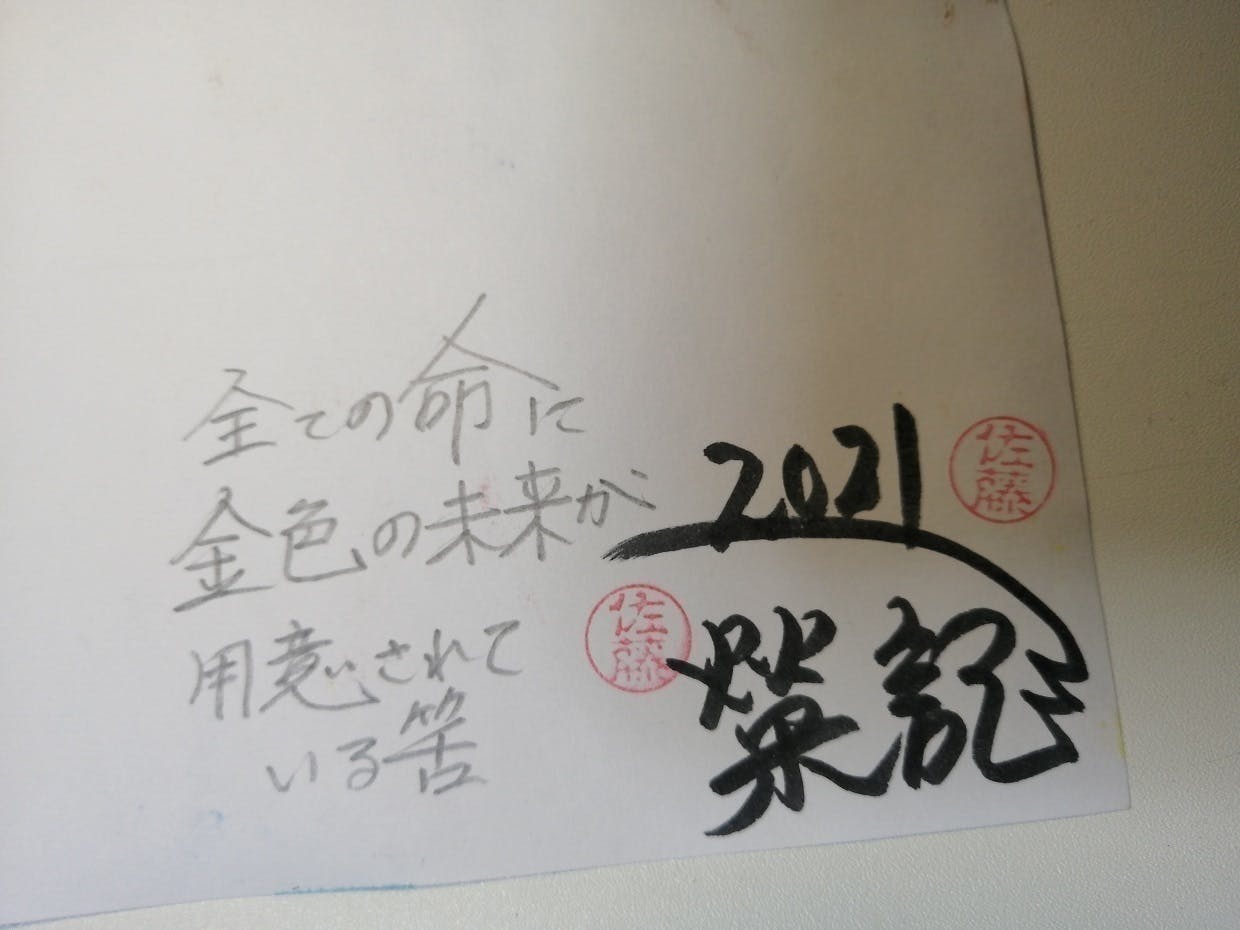 全ての命に
金色の未来が
用意されて
いる筈
2021
佐藤
佐藤
榮龍